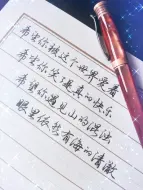 希望你被这个世界爱着
希望你笑是真的快乐
希望你遇见山的浩法
眼里依然有海的清澈